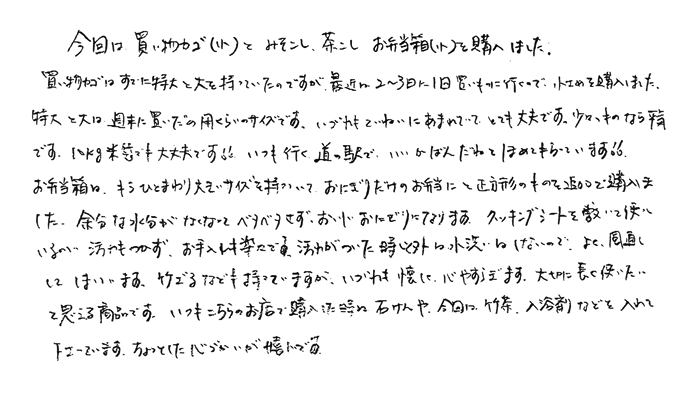 今回は買い物カゴ(小)とみそこし、茶こし お弁当箱(小)を購入しました。
買い物カゴはすでに特大と大を持っていたのですが、最近は2〜3日に1回買いものに行くので、小さめを購入しました。
特大と大は週末に買いだめ用くらいのサイズです。いづれもていねいにあまれていてとても大丈夫です。少々のものなら平
です。10kg米袋でも大丈夫です!! いつも行く道の駅で、いいかばんだねとほめてもらっています!!
お弁当箱は、もうひとまわり大きいサイズを持っていて、おにぎりだけのお弁当にと正方形のものを追加で購入しま
した。余分な水分がなくなってベタベタせず、おいしいおにぎりになります。クッキングシートを敷いて使って
いるのに 汚れもつかず、お手入れも楽です。汚れがついた時以外は水洗いはしないので、よく風通し
してはいます。竹ざるなども持っていますが、いづれも懐しく、心やすらぎます。大切に長く使いたい
と思える商品です。いつもこちらのお店で購入した時は石けんや、今回は竹茶、入浴剤などを入れて
下さっています。ちょっとした心づかいが嬉しいです。